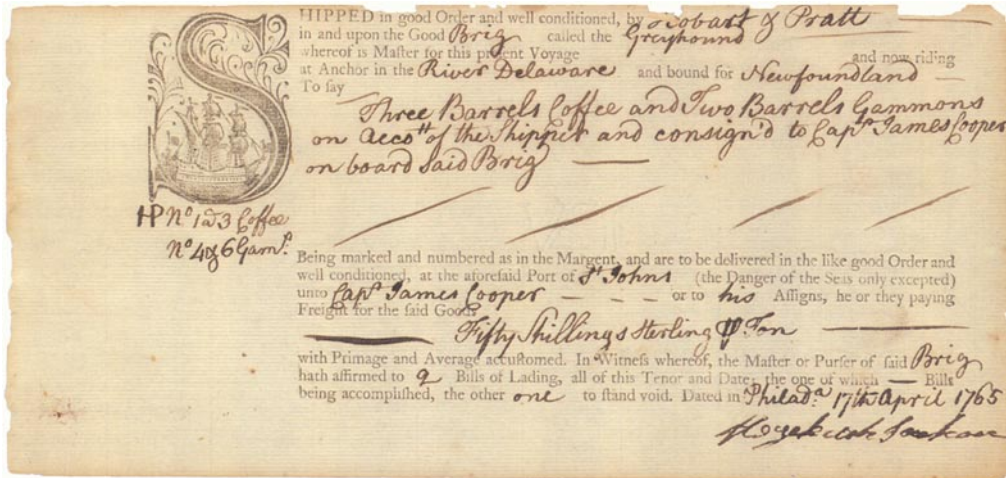 SHIPPED in good Order and well conditioned, by Hobart & Pratt
in and upon the Good Brig called the Greyhound
whereof is Maſter for this preſent Voyage and now riding
at Anchor in the River Delaware and bound for Newfoundland —
To ſay
Three Barrels Coffee and Two Barrels Gammons
on Acco^tt of the Shipper and consign'd to Cap^t James Cooper
on board said Brig —
HP N^o 1 a 3 Coffee
N^o 4 & 6 Gam^s.
Being marked and numbered as in the Margent, and are to be delivered in the like good Order and
well conditioned, at the aforeſaid Port of S^t Johns (the Danger of the Seas only excepted)
unto Cap^t James Cooper – – – – or to his Aſſigns, he or they paying
Freight for the ſaid Goods
Fifty Shillings Sterling ⅌ Ton
with Primage and Average accuſtomed. In Witneſs whereof, the Maſter or Purſer of ſaid Brig
hath affirmed to 2 Bills of Lading, all of this Tenor and Date, the one of which — Bills
being accompliſhed, the other one to ſtand void. Dated in Philad^a 17th April 1765